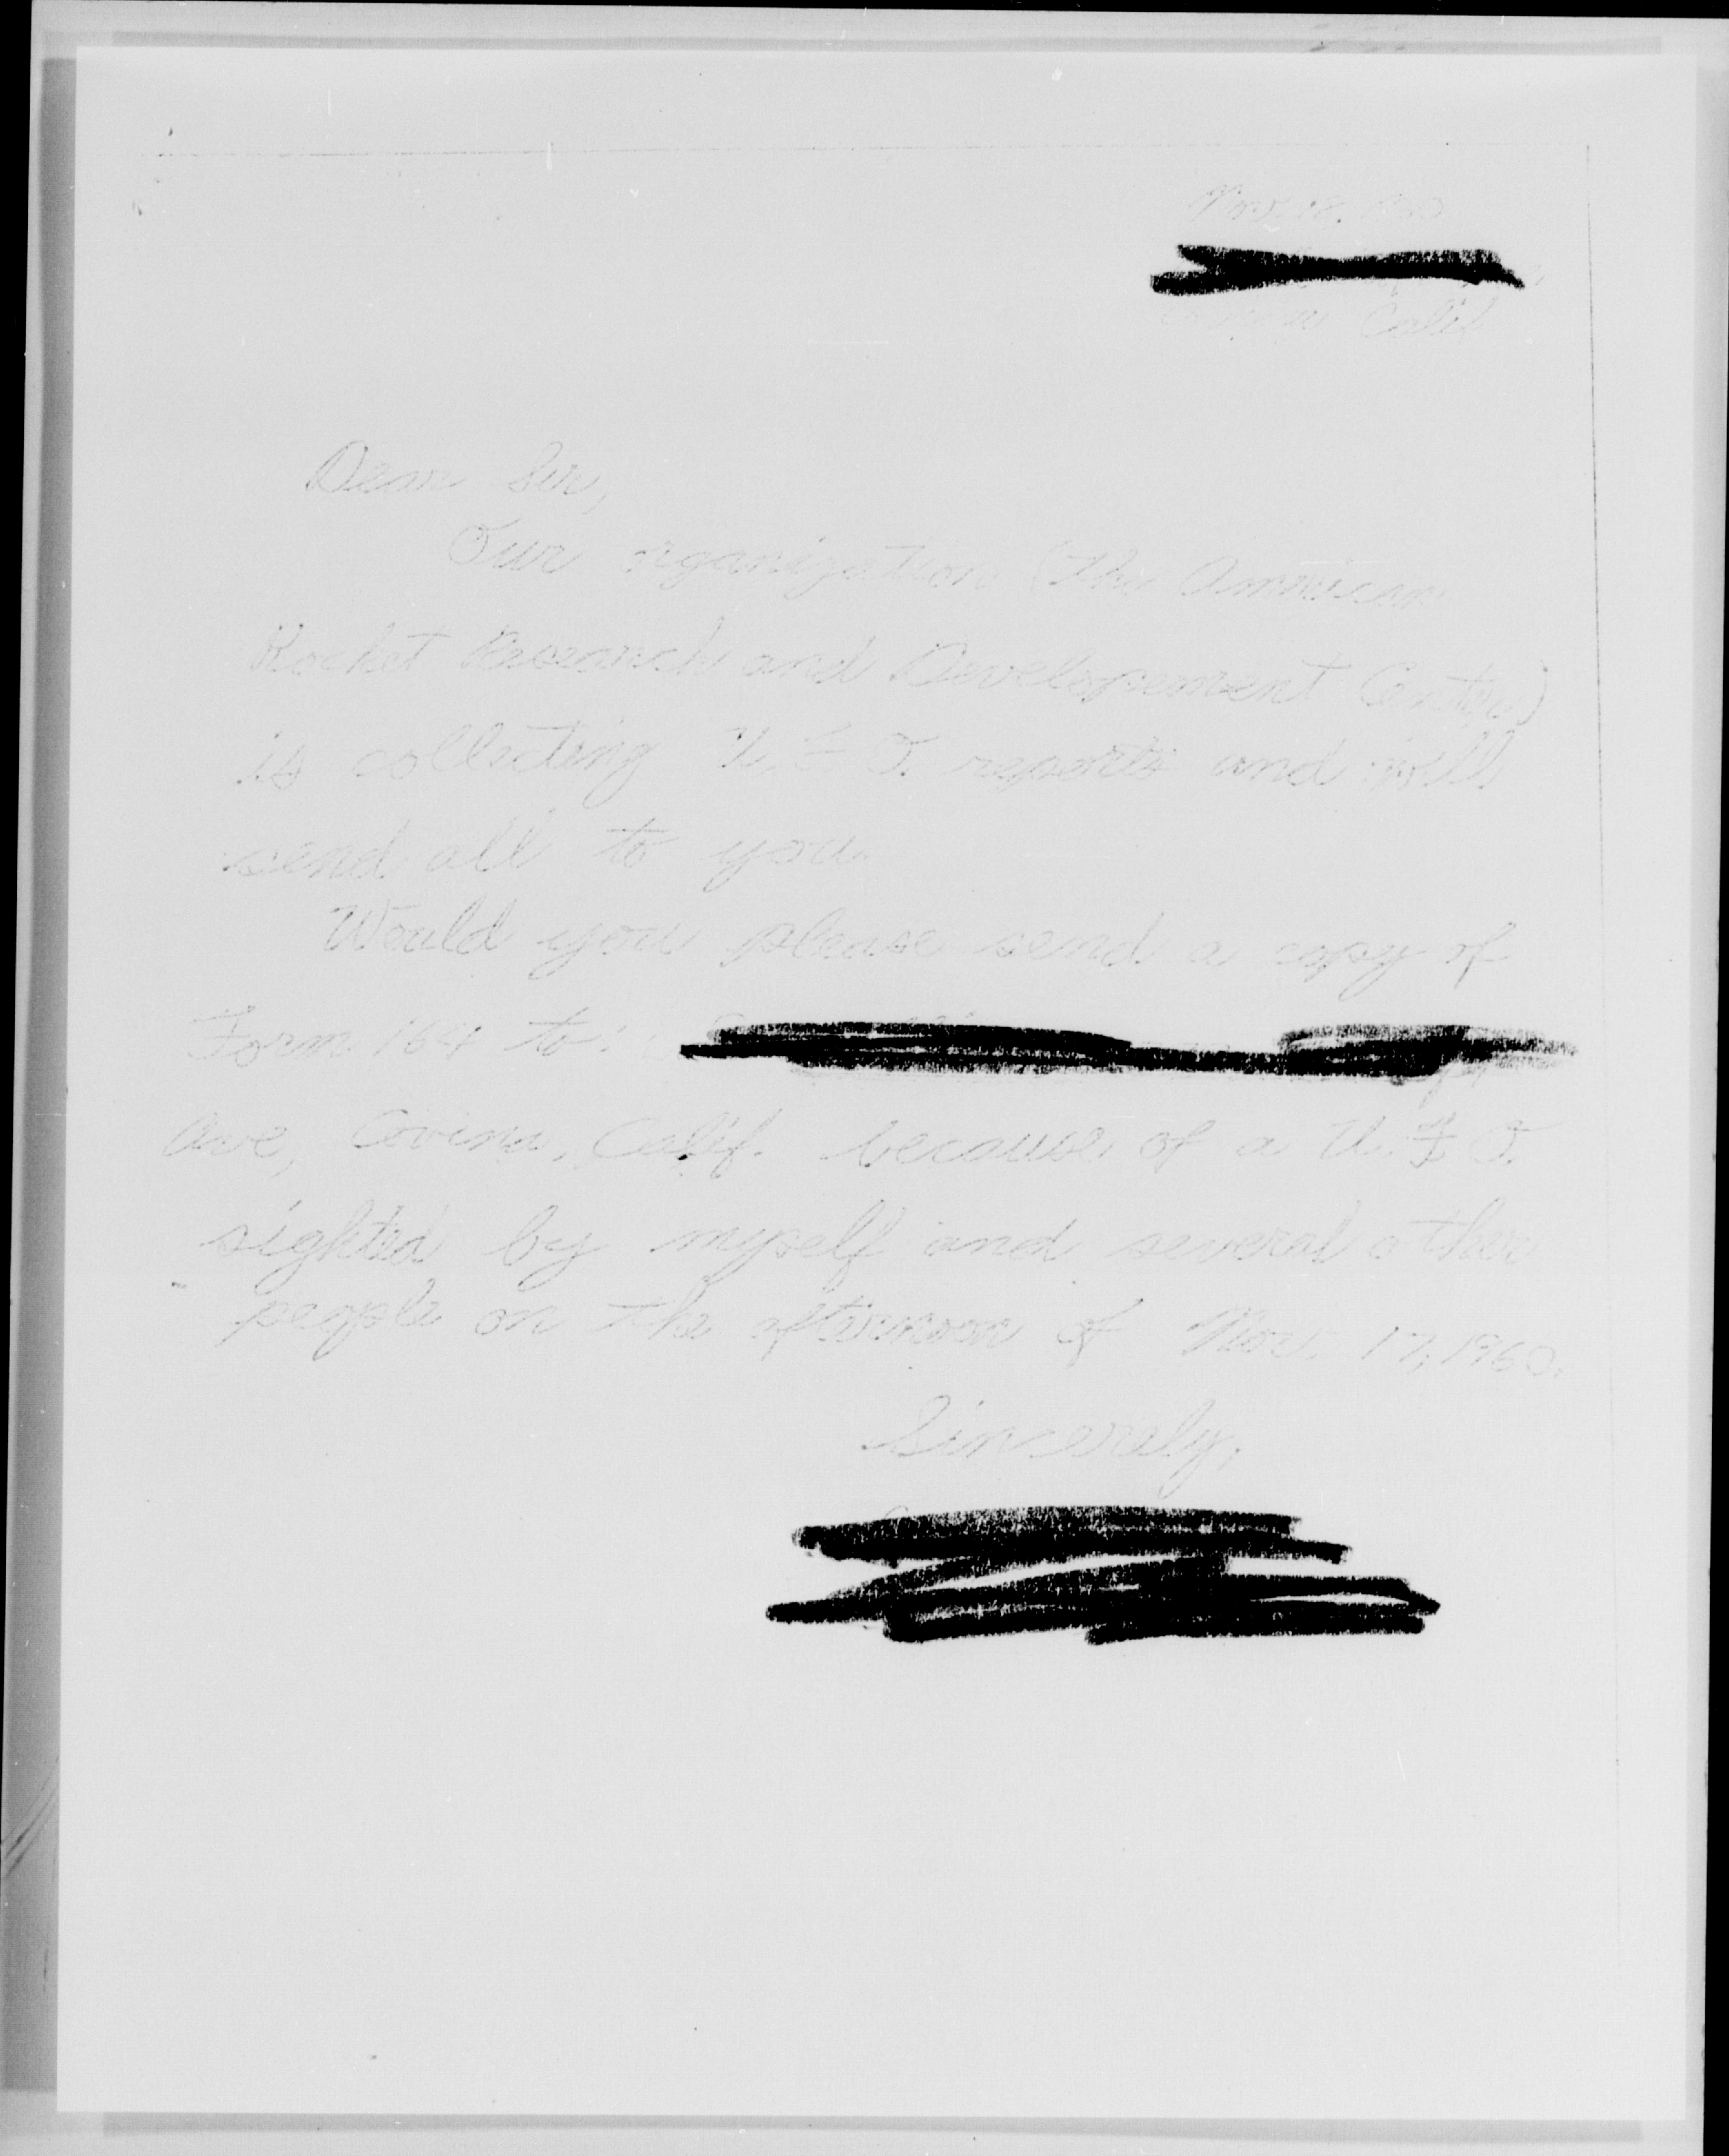 Nov. 18, 1960
Calif
Dear Sir,
Our organization (the American
Rocket Research and Developement Center)
is collecting U.F.O. reports and will
send all to you.
Would you please send a copy of
Form 164 to:
Ave, Covina, Calif. because of a U.F.O.
sighted by myself and several other
people on the afternoon of Nov. 17, 1960.
Sincerely,